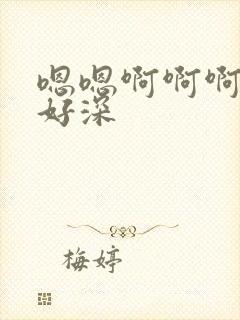 嗯嗯啊啊啊
好深
梅婷